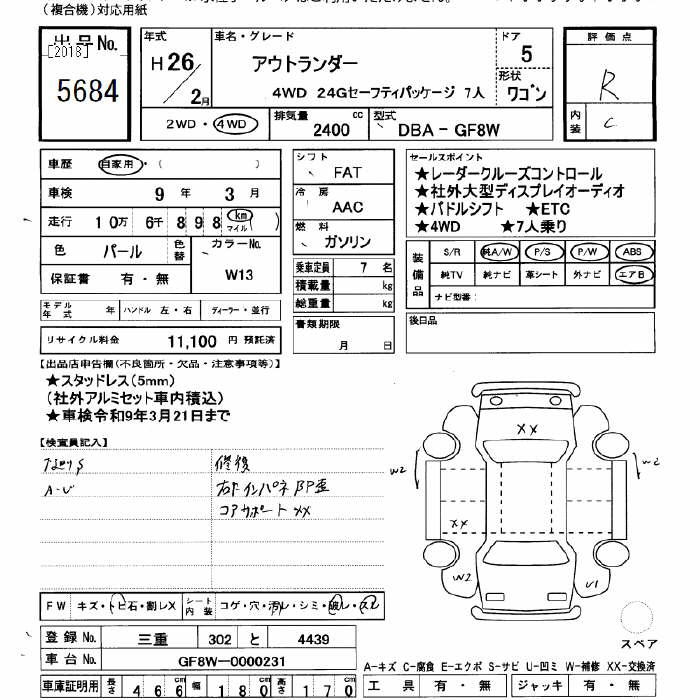 (複合機)対応用紙
出品No.
[2018]
5684
年式
H26/2月
車名・グレード
アウトランダー
4WD 24Gセーフティパッケージ 7人
ドア
5
形状
ワゴン
2WD・4WD
排気量
2400 cc
型式
DBA－GF8W
評価点
R
内装
C
車歴
自家用・( )
車検
9年 3月
走行
10万 6千 898 km マイル( )
色
パール
色替
カラーNo.
W13
保証書
有・無
モデル年式
年
ハンドル 左・右
ディーラー・並行
リサイクル料金
11,100 円 預託済
シフト
FAT
冷房
AAC
燃料
ガソリン
乗車定員
7名
積載量
kg
総重量
kg
書類期限
月 日
セールスポイント
★レーダークルーズコントロール
★社外大型ディスプレイオーディオ
★パドルシフト ★ETC
★4WD ★7人乗り
装備品
S/R 純A/W P/S P/W ABS
純TV 純ナビ 革シート 外ナビ エアB
ナビ型番:
後日品
【出品店申告欄(不良箇所・欠品・注意事項等)】
★スタッドレス(5mm)
(社外アルミセット車内積込)
★車検令和9年3月21日まで
【検査員記入】
A-U
修復
右F インパネ部P歪
コアサポート XX
XX
W2
W2
XX
W2
U1
FW
キズ・トビ石・割レX
シート内装
コゲ・穴・汚レ・シミ・破レ・スレ
スペア
登録 No.
三重 302 と 4439
車台 No.
GF8W-0000231
車庫証明用
長さ 466 cm 幅 180 cm 高さ 170
A-キズ C-腐食 E-エクボ S-サビ U-凹ミ W-補修 XX-交換済
工具 有・無 ジャッキ 有・無